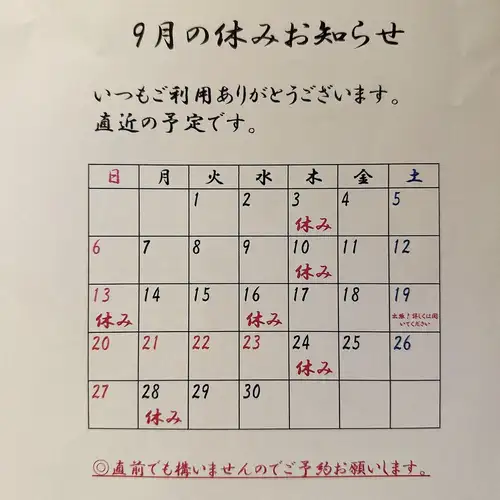 9月の休みお知らせ
いつもご利用ありがとうございます。
直近の予定です。
日 月 火 水 木 金 土
1 2 3 4 5
休み
6 7 8 9 10 11 12
休み
13 14 15 16 17 18 19
休み 休み 出店！詳しくは聞
いてください
20 21 22 23 24 25 26
休み
27 28 29 30
休み
◎直前でも構いませんのでご予約お願いします。